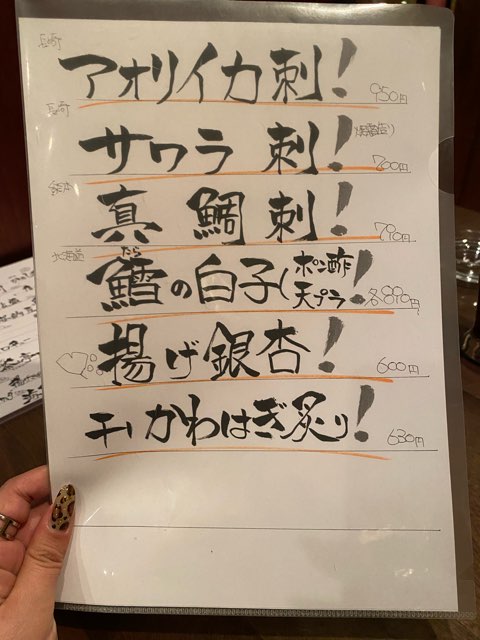 長崎
アオリイカ刺! 950円
長崎
サワラ刺!
熊本
真鯛刺! 790円
北海道
たら
鱈の白子(ポン酢
天プラ! 各890円
揚げ銀杏! 600円
干しかわはぎ炙り! 680円